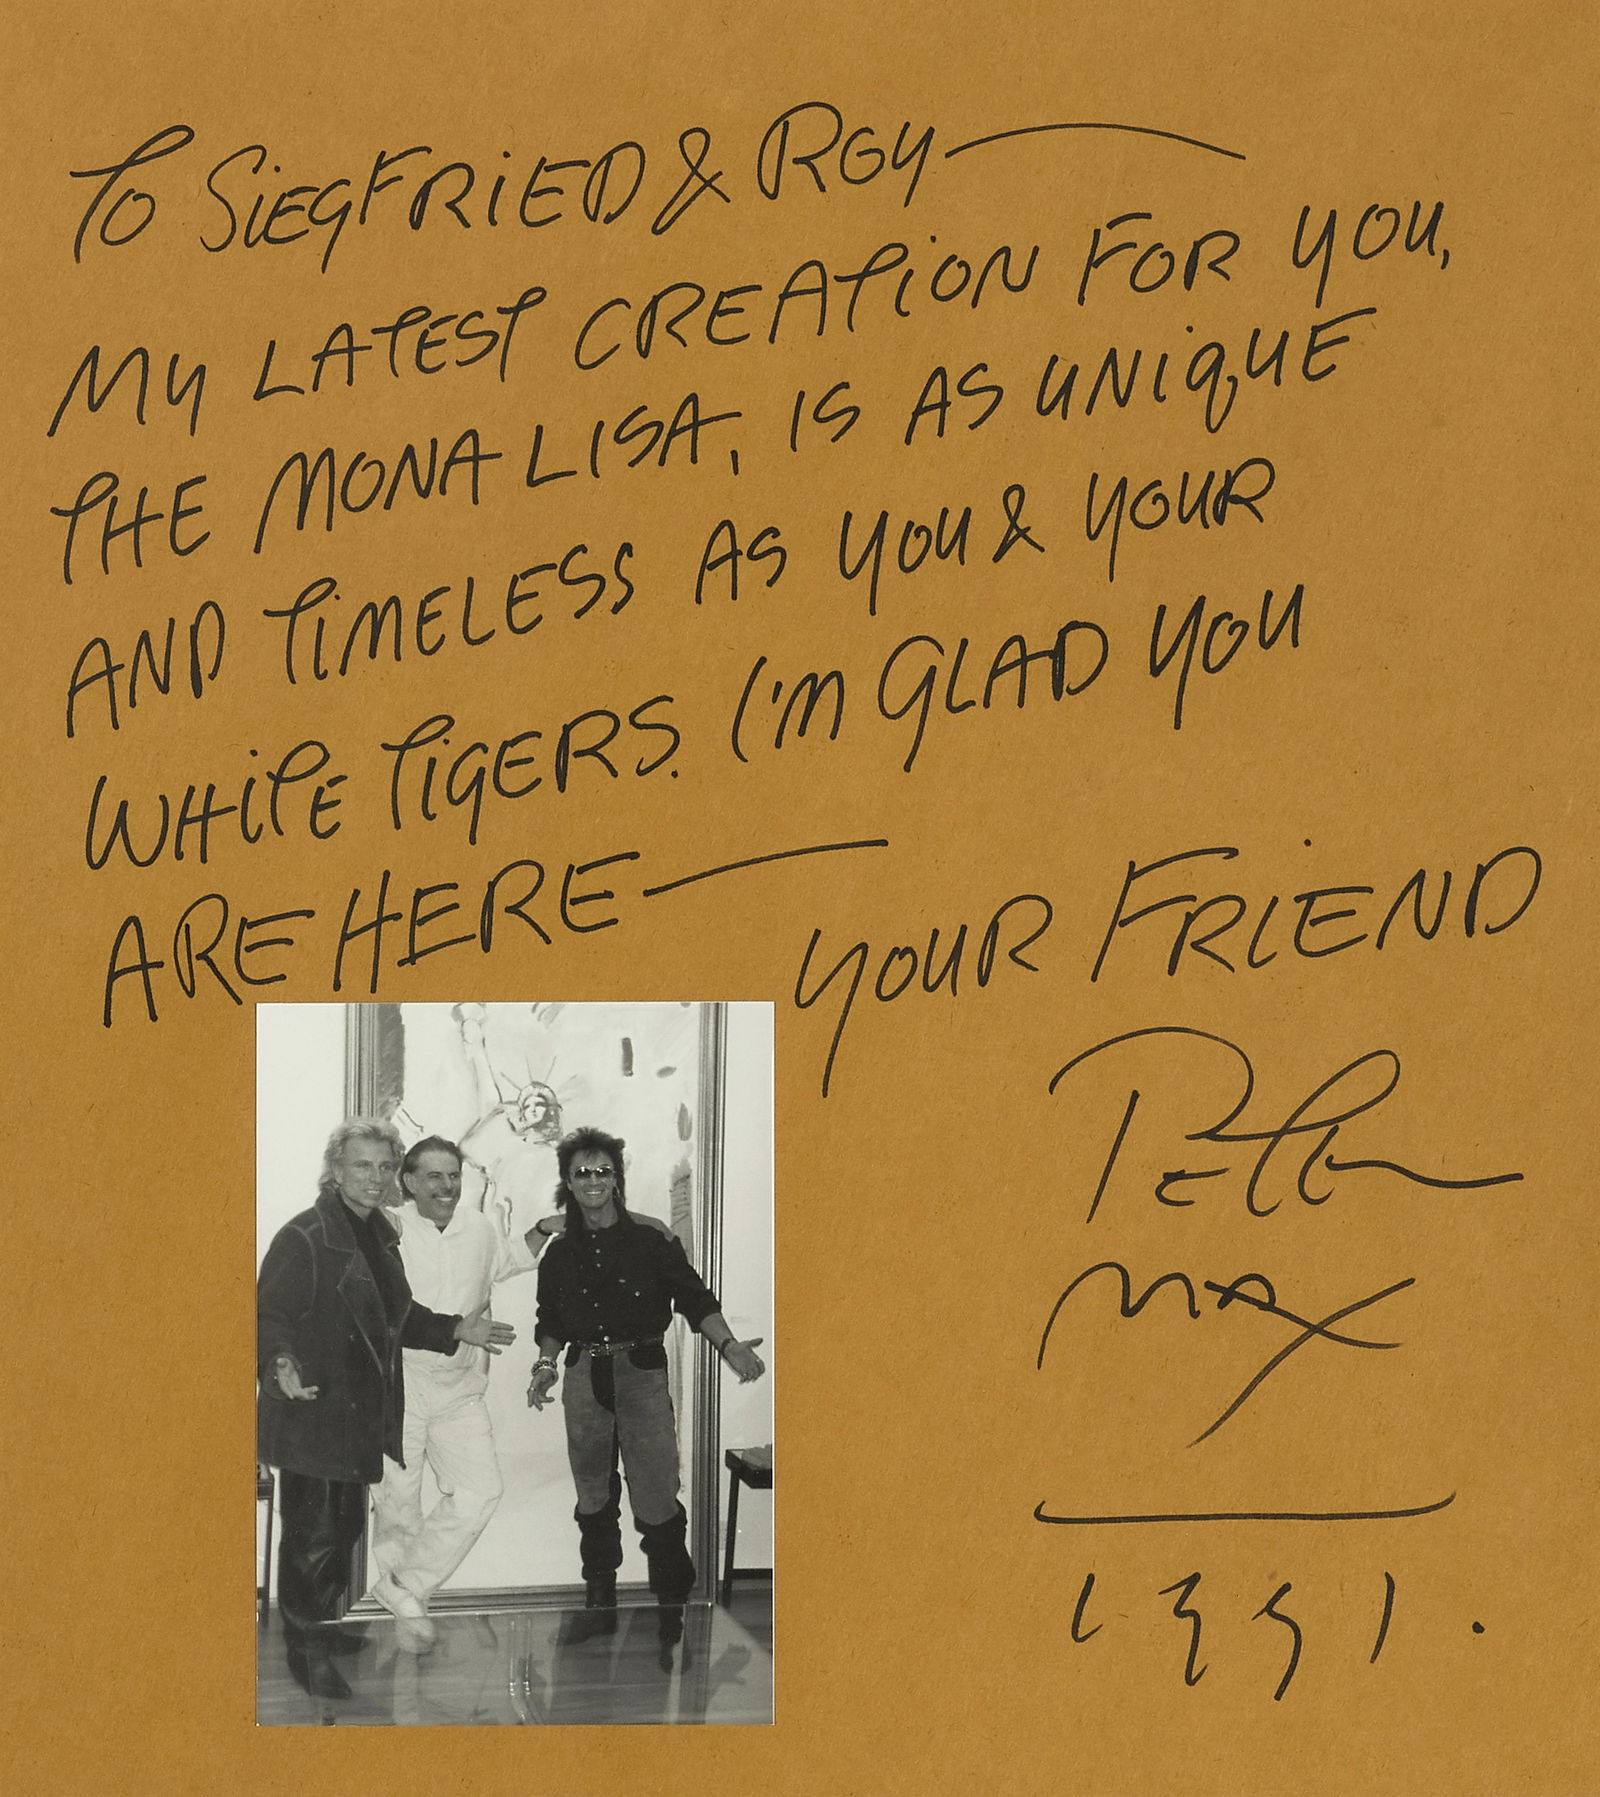 TO SIEGFRIED & ROY—
MY LATEST CREATION FOR YOU,
THE MONA LISA, IS AS UNIQUE
AND TIMELESS AS YOU & YOUR
WHITE TIGERS. I'M GLAD YOU
ARE HERE—
YOUR FRIEND
Peter
MAX
1991.